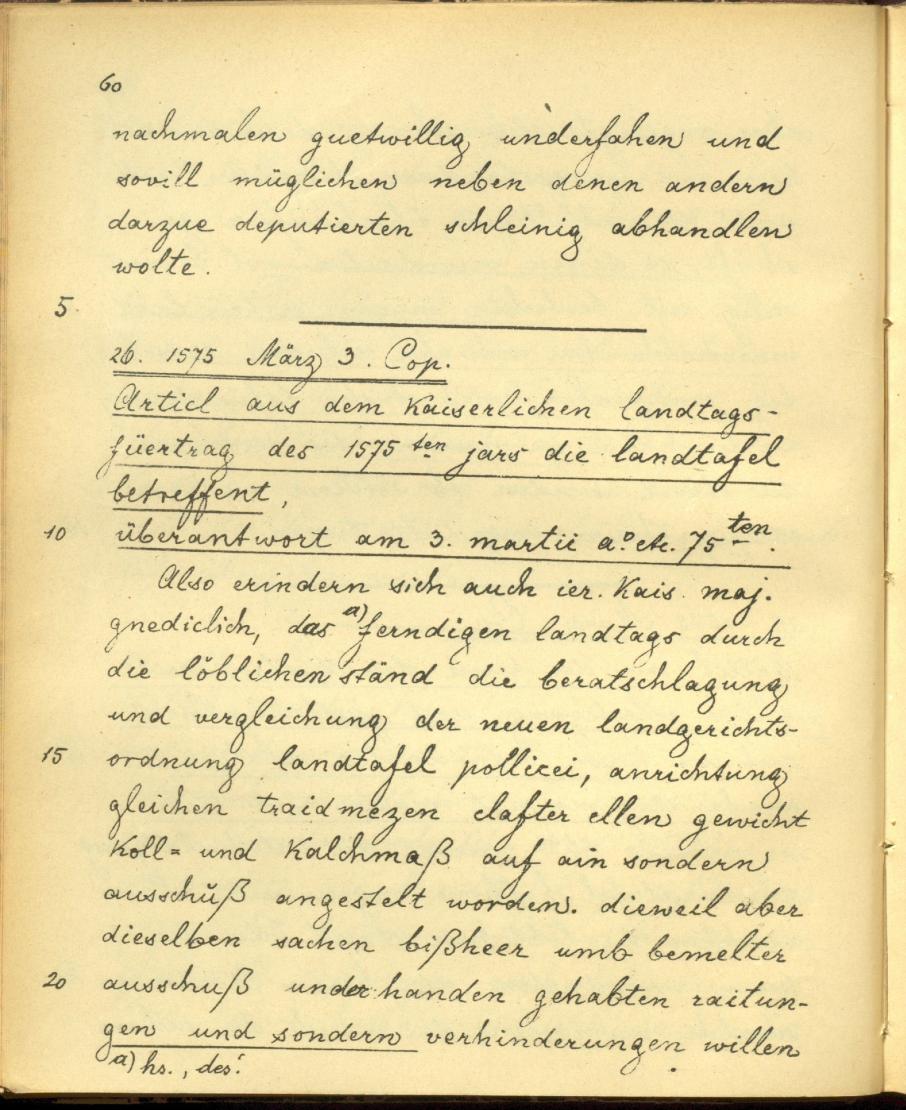 60
nachmalen guetwillig underfahen und
sovill müglichen neben denen andern
darzue deputierten schleinig abhandlen
wolte.
5.
26. 1575 März 3. Cop.
Articl aus dem Kaiserlichen landtags-
füertrag des 1575 ten jars die landtafel
betreffent,
10 überantwort am 3. martii a.° etc. 75 ten.
Also erindern sich auch ier. Kais. maj.
gnediclich, das a) ferndigen landtags durch
die löblichen ständ die beratschlagung
und vergleichung der neuen landgerichts-
15 ordnung landtafel pollicei, anrichtung
gleichen traidmezen clafter ellen gewicht
Koll= und Kalchmaß auf ain sondern
ausschuß angestelt worden. dieweil aber
dieselben sachen bißheer umb bemelter
20 ausschuß underhanden gehabten raitun-
gen und sondern verhinderungen willen
a) hs., des'.